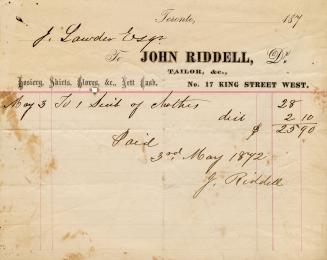 Toronto, 187
J. Lawder Esqr
To JOHN RIDDELL, Dr.
TAILOR, &c.,
Hosiery, Shirts, Gloves, &c., Nett Cash. No. 17 KING STREET WEST.
May 3 To 1 Suit of Clothes 28
dis 2 10
$ 25 90
Paid
3rd May 1872
J. Riddell